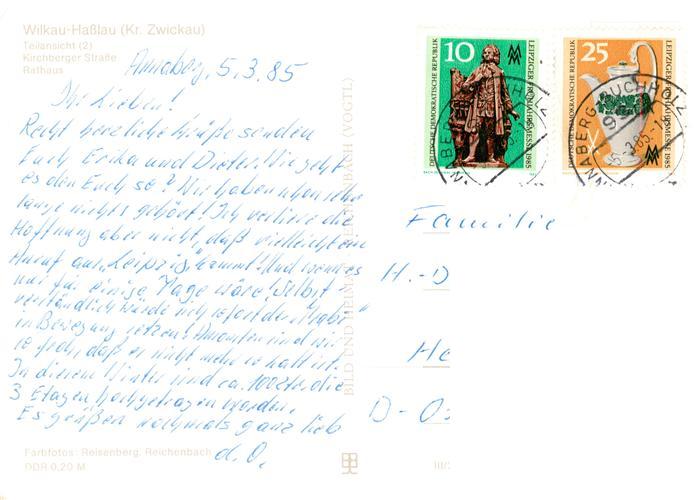 Wilkau-Haßlau (Kr. Zwickau)
Teilansicht (2)
Kirchberger Straße
Rathaus
Annabg, 5.3.85
Ihr Lieben!
Recht herzliche Grüße senden
Euch Erika und Dieter. Wie geht
es den Euch so? Wir haben schon sehr
lange nichts gehört! Ich verliere die
Hoffnung aber nicht, daß vielleicht ein
Anruf aus „Leipzig" kommt! Und wenn es
nur für einige Tage wäre! Selbst
verständlich würde sich sofort der
in Bewegung setzen! Ansonsten sind wir
so froh, daß es nicht mehr so kalt ist.
In diesem Winter sind ca. 100 Ztr. die
3 Etagen hochgetragen worden.
Es grüßen nochmals ganz lieb
d. O.
Farbfotos: Reisenberg, Reichenbach
DDR 0,20 M
BILD UND HEIMAT REICHENBACH (VOGTL)
III/
10
DEUTSCHE DEMOKRATISCHE REPUBLIK
LEIPZIGER FRÜHJAHRSMESSE 1985
25
DEUTSCHE DEMOKRATISCHE REPUBLIK
LEIPZIGER FRÜHJAHRSMESSE 1985
ABERG-BUCHHOLZ
Familie
H.-D
He
D-O